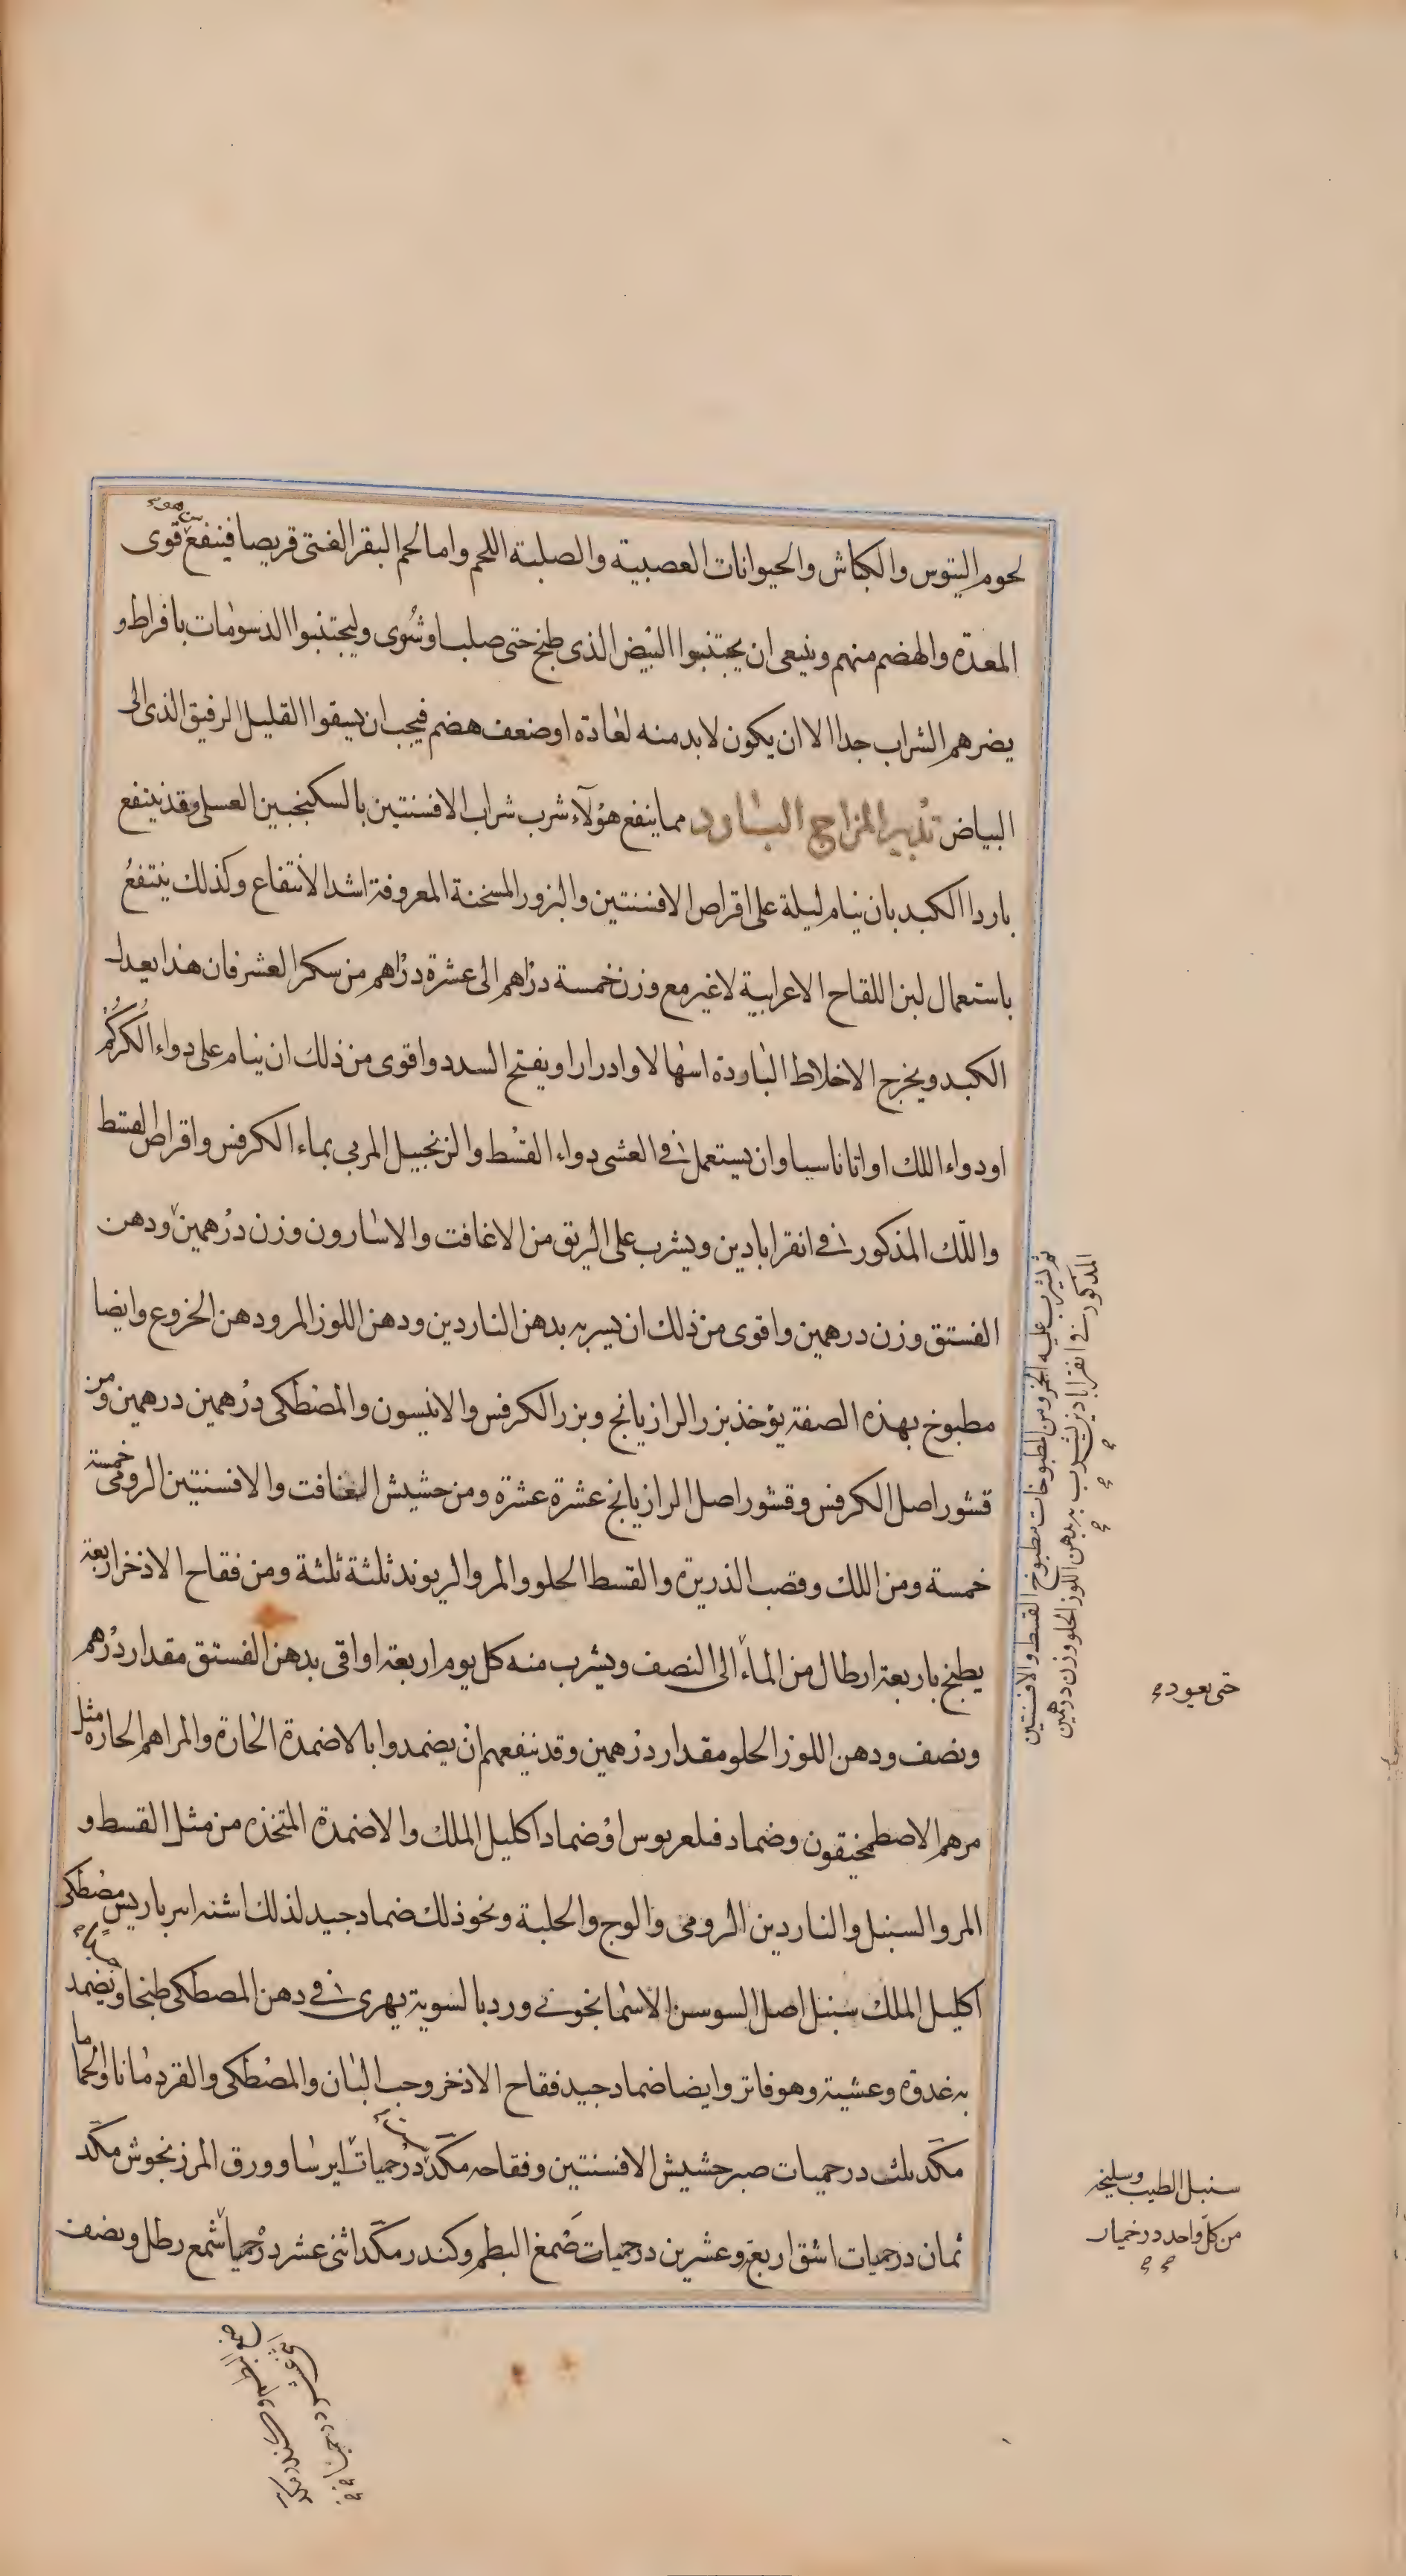 لحوم التيوس والكباش والحيوانات العصبية والصلبة اللحم واما لحم البقر الفتى قريصا فينفع قوى
المعدة والهضم منهم وينبغى ان يجتنبوا البيض الذى طبخ حتى صلب او شُوى وليجتنبوا الدسومات بافراط و
يضرهم الشراب جدا الا ان يكون لا بد منه لعادة او ضعف هضم فيجب ان يسقوا القليل الرقيق الذى الى
البياض تدبير المزاج البارد مما ينفع هؤلآء شرب شراب الافسنتين بالسكنجبين العسلى وقد ينتفع
باردا الكبد بان ينام ليلة على اقراص الافسنتين والبزور المسخنة المعروفة اشد الانتفاع وكذلك ينتفعُ
باستعمال لبن اللقاح الاعرابية لا غير مع وزن خمسة دراهم الى عشرة دراهم من سكر العشر فان هذا يعدل
الكبد ويخرج الاخلاط الباردة اسهالا وادرارا ويفتح السدد واقوى من ذلك ان ينام على دواء الكُركُم
او دواء اللك او اثاناسيا وان يستعمل فى العشى دواء القسط والزنجبيل المربى بماء الكرفس واقراص القسط
واللّك المذكور فى انقراباد ين ويشرب على الريق من الاغافت والاسارون وزن درهمين ودهن
الفستق وزن درهمين واقوى من ذلك ان يسربه بدهن الناردين ودهن اللوز المر ودهن الخروع وايضا
مطبوخ بهذه الصفة يؤخذ بزر الرازيانج وبزر الكرفس والانيسون والمصطكى درهمين درهمين ومن
قشور اصل الكرفس وقشور اصل الرازيانج عشرة عشرة ومن حشيش الغافت والافسنتين الرومى خمسة
خمسة ومن اللك وقصب الذريرة والقسط الحلو والمر والريوند ثلثة ثلثة ومن فقاح الاذخر اربعة
يطبخ باربعة ارطال من الماء الى النصف ويشرب منه كل يوم اربعة اواقى بدهن الفستق مقدار درهم
ونصف ودهن اللوز الحلو مقدار درهمين وقد ينفعهم ان يضمدوا بالاضمدة الحارة والمراهم الحاره مثل
مرهم الاصطمخيقون وضماد فىلعريوس او ضماد اكليل الملك والاضمدة المتخذه من مثل القسط و
المر والسنبل والناردين الرومى والوج والحلبة ونحو ذلك ضماد جيد لذلك اشنه امبرباريس مصطكى
اكليل الملك سنبل اصل السوسن الاسمانجونى ورد بالسوية يهرى فى دهن المصطكى طبخا ويضمد
به غدوة وعشية وهو فاتر وايضا ضماد جيد فقاح الاذخر وحب البان والمصطكى والقردمانا والحماما
مكَد ثلث درخميات صبر حشيش الافسنتين وفقاحه مكَد درخميات ايرسا وورق المرزنجوش مكَد
ثمان درخميات اشق اربع وعشرين درخميات صَمغ البطم وكندر مكَد اثنى عشر درخميا شمع رطل ونصف
ثم يشرب عليه اخرو من المطبوخات مطبوخ القسط والافسنتين
المذكور فى انقرابادين يشرب به بدهن اللوز الحلو وزن درهمين
حتى يعود
سنبل الطيب وسليخه
من كل واحد درخميان